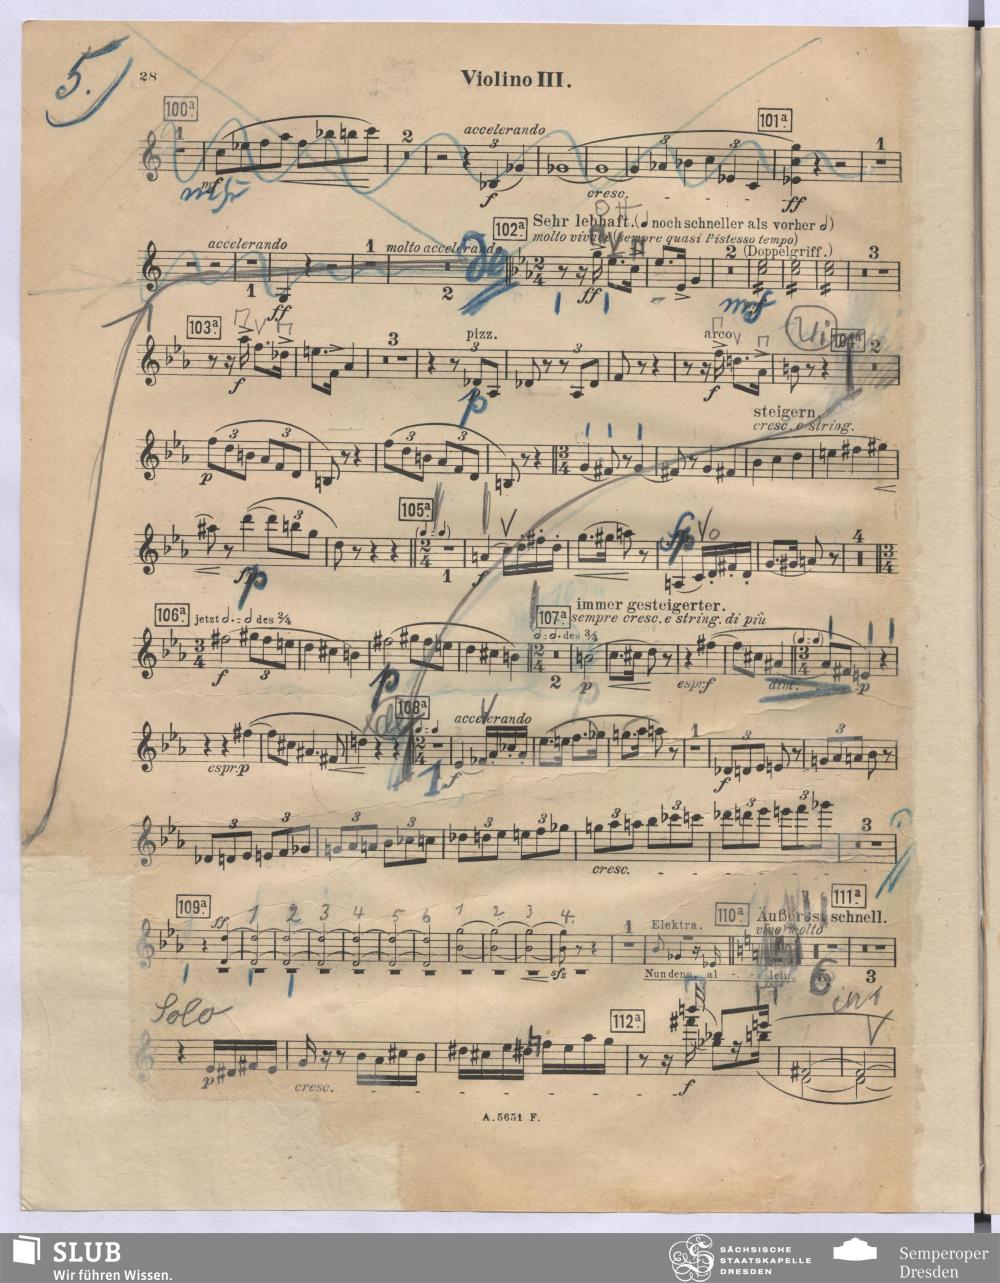 5.) 28 Violino III.
100ª 1 2 accelerando 3 3 3 101ª 1
mf f cresc. ff
accelerando 1 molto accelerando 102ª Sehr lebhaft. (noch schneller als vorher)
molto vivace (sempre quasi l'istesso tempo)
2 (Doppelgriff.) 3
1 ff 2 ff
103ª 3 pizz. arco 104ª 2
f p f
steigern.
cresc. e string.
3 3 3 3
p
105ª 3 4
p 1 f
106ª jetzt des 3/4 107ª immer gesteigerter.
sempre cresc. e string. di più
des 3/4
f 3 p 2 p espr. f dim. p
108ª accelerando 1 3 3
espr. p 1 f f
3 3 3 3 3 3 3 3 3 3 3
cresc. - - - -
109ª ff 1 2 3 4 5 6 1 2 3 4. 1 Elektra. 110ª Äußerst schnell. 111ª
vivo molto
sfz Nun denn, al - - lein. 6 3
Solo
112ª
p cresc. - - - - f
A. 5651 F.
SLUB
Wir führen Wissen.
SÄCHSISCHE
STAATSKAPELLE
DRESDEN
Semperoper
Dresden